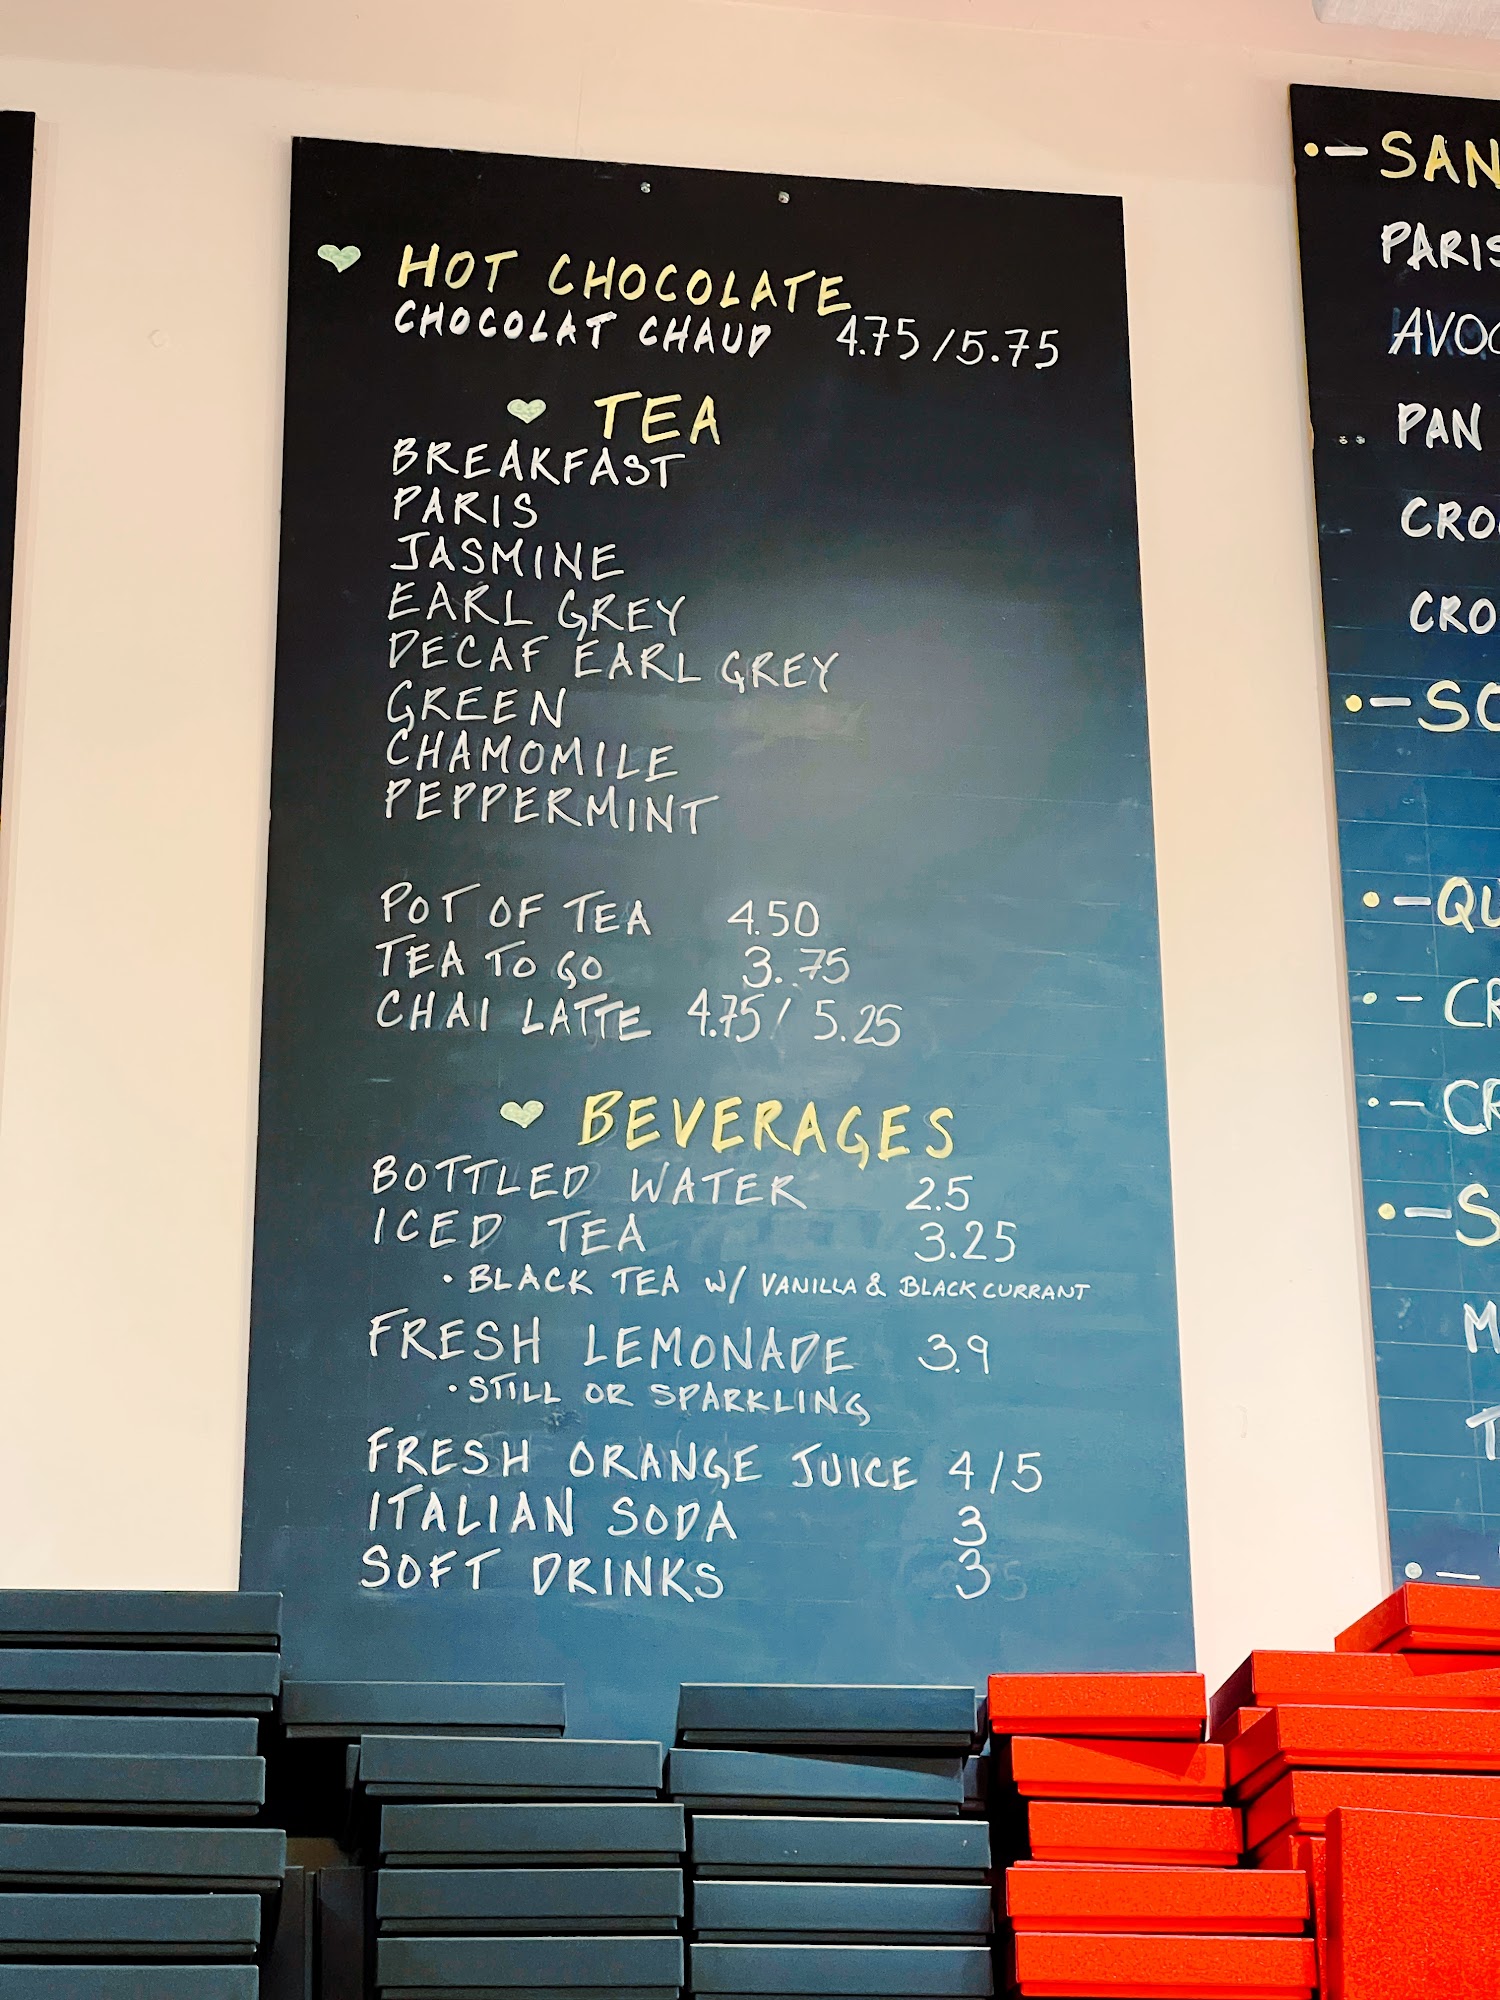 HOT CHOCOLATE
CHOCOLAT CHAUD 4.75/5.75
TEA
BREAKFAST
PARIS
JASMINE
EARL GREY
DECAF EARL GREY
GREEN
CHAMOMILE
PEPPERMINT
POT OF TEA 4.50
TEA TO GO 3.75
CHAI LATTE 4.75/5.25
BEVERAGES
BOTTLED WATER 2.5
ICED TEA 3.25
• BLACK TEA W/ VANILLA & BLACK CURRANT
FRESH LEMONADE 3.9
• STILL OR SPARKLING
FRESH ORANGE JUICE 4/5
ITALIAN SODA 3
SOFT DRINKS 3
PAN